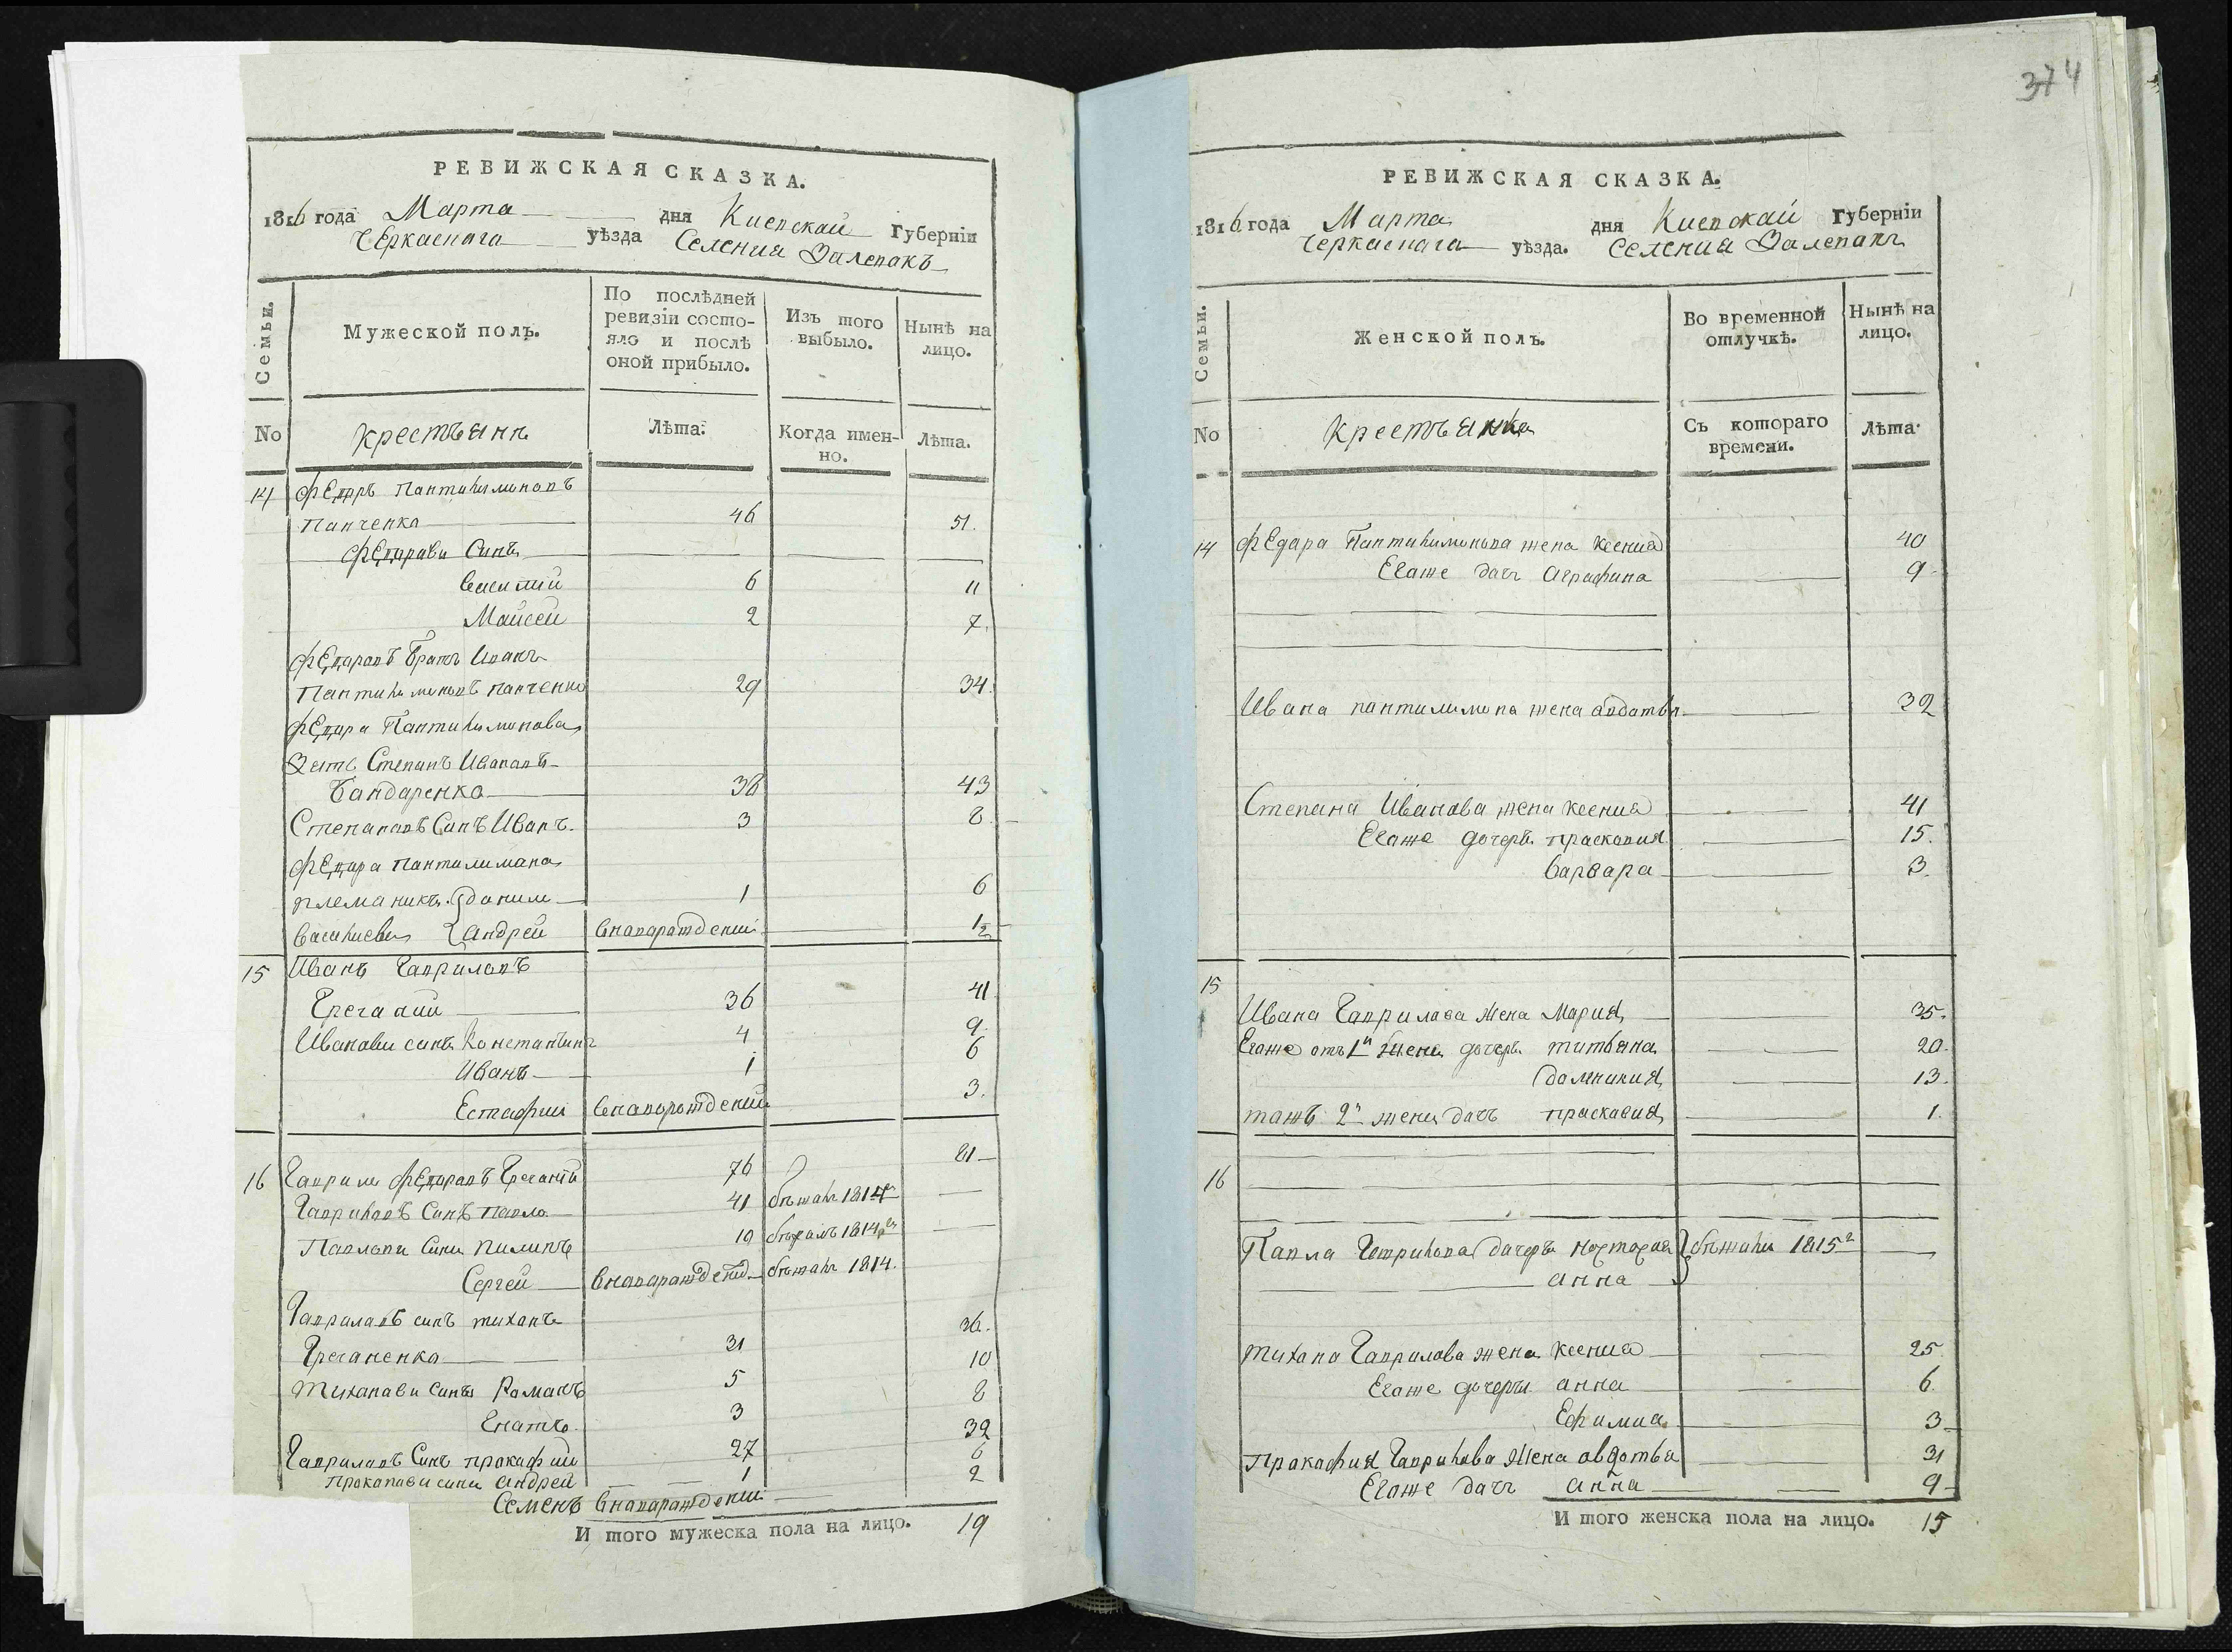 РЕВИЖСКАЯ СКАЗКА.
1816 года Марта дня Киевской Губерніи
Черкаскаго уѣзда Селения Валепакъ
Семьи.
Мужеской полъ.
По послѣдней ревизіи состо-
яло и послѣ оной прибыло.
Изъ того выбыло.
Нынѣ на лицо.
No
крестьянъ
Лѣта.
Когда имен-
но.
Лѣта.
14 Федоръ Пантилимоновъ
Панченко 46 51.
Федорови Сины
Василий 6 11
Мойсей 2 7.
Федоровъ братъ Иванъ
Пантилимоновъ панченко 29 34.
Федора Пантилимонова
Зять Степанъ Ивановъ
Бандаренко 38 43
Степановъ Синъ Иванъ 3 8.
Федора пантилимона
племаникъ данило 1 6
Василиеви андрей вновораждении 1½
15 Иванъ Гавриловъ
Гречаний 36 41.
Иванови сины Константинъ 4 9.
Иванъ 1 6
Естафий вновораждений 3.
16 Гаврило Федоровъ Гречаный 76 81
Гавриловъ Синъ павло 41 бежалъ 1814г
Павлови Сины пилипъ 19 бежалъ 1814го
Сергей вновораждений бежалъ 1814.
Гавриловъ синъ тиханъ
Гречаненко 31 36.
Тиханови Сины Раманъ 5 10
Игнатъ 3 8
Гавриловъ Синъ пракафий 27 32
Пракапави сини андрей 1 6
Семенъ вновораждении 2
И того мужеска пола на лицо. 19
374
РЕВИЖСКАЯ СКАЗКА.
1816 года Марта дня Киевской Губерніи
Черкаскаго уѣзда. Селения Валепакъ
Семьи.
Женской полъ.
Во временной отлучкѣ.
Нынѣ на лицо.
No
крестьянка
Съ котораго времени.
Лѣта.
14 Федора Пантилимонова жена Ксения 40
Егоже дочь аграфина 9
Ивана пантилимона жена авдотья 32
Степана Иванова жена ксения 41
Егоже дочери праскавия 15.
варвара 3.
15
Ивана Гаврилова жена Мария 35.
Егоже отъ 1й жени дочери титьяна 20.
домникия 13.
тожъ 2й жени дочь праскавия 1.
16
Павла Гаврилова дочери бежали 1815г
анна
Тихана Гаврилова жена ксения 25
Егоже дочери анна 6.
Ефимия 3
Пракафия Гаврилова жена авдотья 31
Егоже дочь анна 9
И того женска пола на лицо. 15